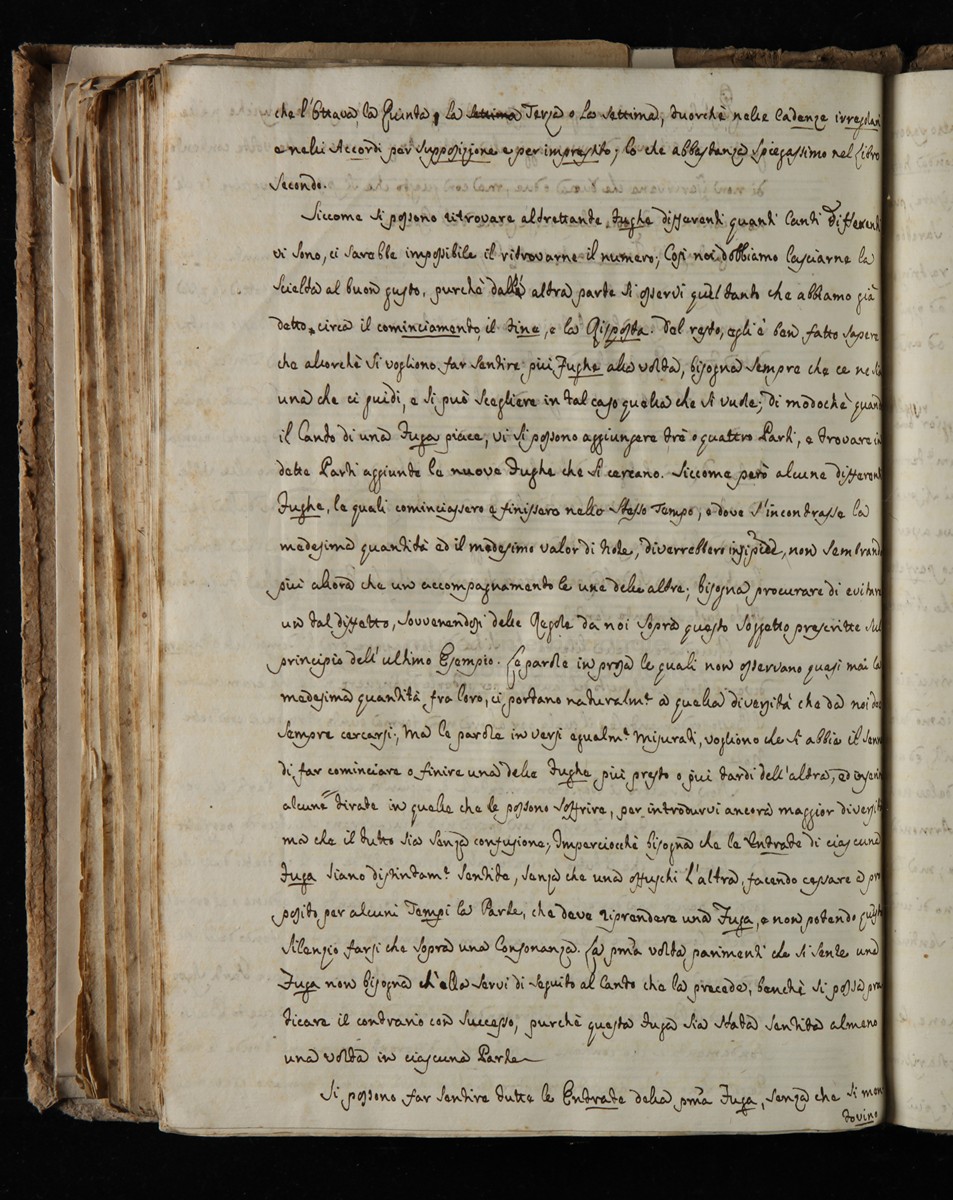 che l'Ottava, la Quinta, la Settima Terza o la Settima, fuorchè nelle Cadenze irregolari
e nelli Accordi per supposizione e per imprestito; lo che abbastanza spiegassimo nel Libro
secondo.
Siccome si possono ritrovare altrettante fughe differenti quanti Canti differenti
vi sono, ci sarebbe impossibile il ritrovarne il numero; Così noi dobbiamo lasciarne la
scielta al buon gusto, purchè dall' altra parte si osservi quel tanto che abbiamo già
detto, circa il cominciamento, il fine, e la Risposta. Del resto, egli è ben fatto sapere
che alorchè si vogliono far sentire più Fughe alla volta, bisogna sempre che ce ne sia
una che ci guidi, e si può scegliere in tal caso quella che si vuole; di modochè quando
il Canto di una Fuga piace, vi si possono aggiungere trè o quattro Parti, e trovare in
dette Parti aggiunte le nuove fughe che si cercano. Siccome però alcune differenti
Fughe, le quali cominciassero e finissero nello stesso Tempo, o dove s'incontrasse la
medesima quantità ed il medesimo valor di Note, diverrebbero insipide, non sembrando
più allora che un accompagnamento le une delle altre; bisogna procurare di evitare
un tal diffetto, sovvenendosi delle Regole da noi sopra questo soggetto prescritte sul
principio dell'ultimo Esempio. Le parole in prosa le quali non osservano quasi mai la
medesima quantità fra loro, ci portano naturalm.te a quella diversità che da noi dee
sempre cercarsi; Ma le parole in versi egualm.te misurati, vogliono che si abbia il senno
di far cominciare o finire una delle Fughe più presto o più tardi dell'altra, ed inserir
alcune tirate in quelle che le possono soffrire, per introdurvi ancora maggior diversità
ma che il tutto sia senza confusione; Imperciocchè bisogna che le Entrate di ciascuna
Fuga siano distintam.te sentite, senza che una offuschi l'altra, facendo cessare a pro
posito per alcuni Tempi la Parte, che deve riprendere una Fuga, e non potendo questo
silenzio farsi che sopra una Consonanza. La pma volta parimenti che si sente una
Fuga non bisogna ch'ella servi di seguito al Canto che la precede, benchè si possa pra
ticare il contrario con successo, purchè questa fuga sia stata sentita almeno
una volta in ciascuna Parte
Si possono far sentire tutte le Entrate della pma Fuga, senza che si men
tovino